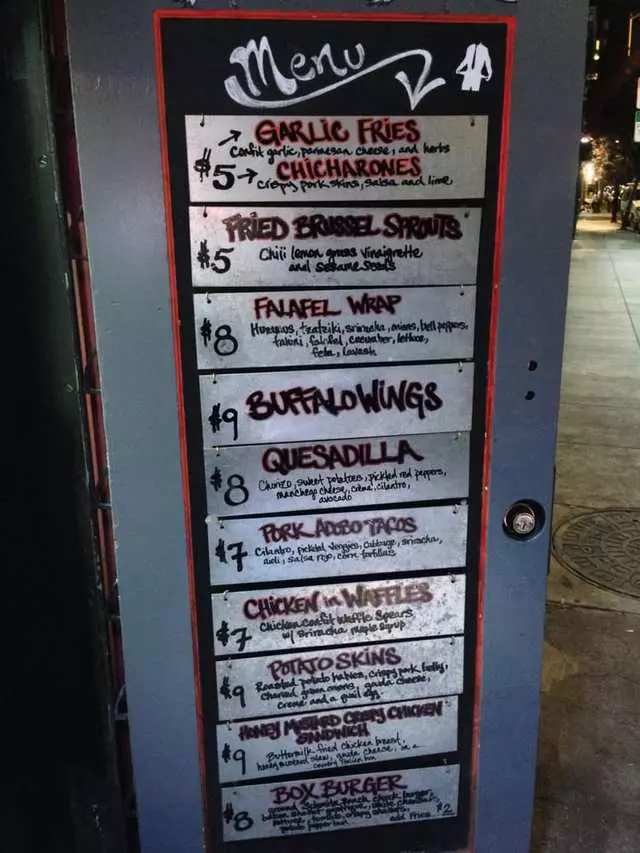 Menu
GARLIC FRIES
Confit garlic, parmesan cheese, and herbs
$5 CHICHARONES
crispy pork skins, salsa and lime
FRIED BRUSSEL SPROUTS
$5 Chili lemon grass vinaigrette
and sesame seeds
FALAFEL WRAP
$8 Hummus, tzatziki, sriracha, onions, bell peppers,
tahini, falafel, cucumber, lettuce,
feta, lavash
$9 BUFFALO WINGS
QUESADILLA
$8 Chorizo, sweet potatoes, pickled red peppers,
manchego cheese, crema, cilantro,
avocado
PORK ADOBO TACOS
$7 Cilantro, pickled veggies, cabbage, sriracha,
aioli, salsa rojo, corn tortillas
CHICKEN in WAFFLES
$7 Chicken confit waffle spears
w/ sriracha maple syrup
POTATO SKINS
$9 Roasted potato halves, crispy pork belly,
charred green onions, gouda cheese,
creme and a quail egg
HONEY MUSTARD CRISPY CHICKEN
SANDWICH
$9 Buttermilk fried chicken breast,
honey mustard slaw, gouda cheese, on a
country Italian bun
BOX BURGER
$8 ground chuck burger,
bacon white cheddar,
lettuce, crispy
potato bun add fries $2